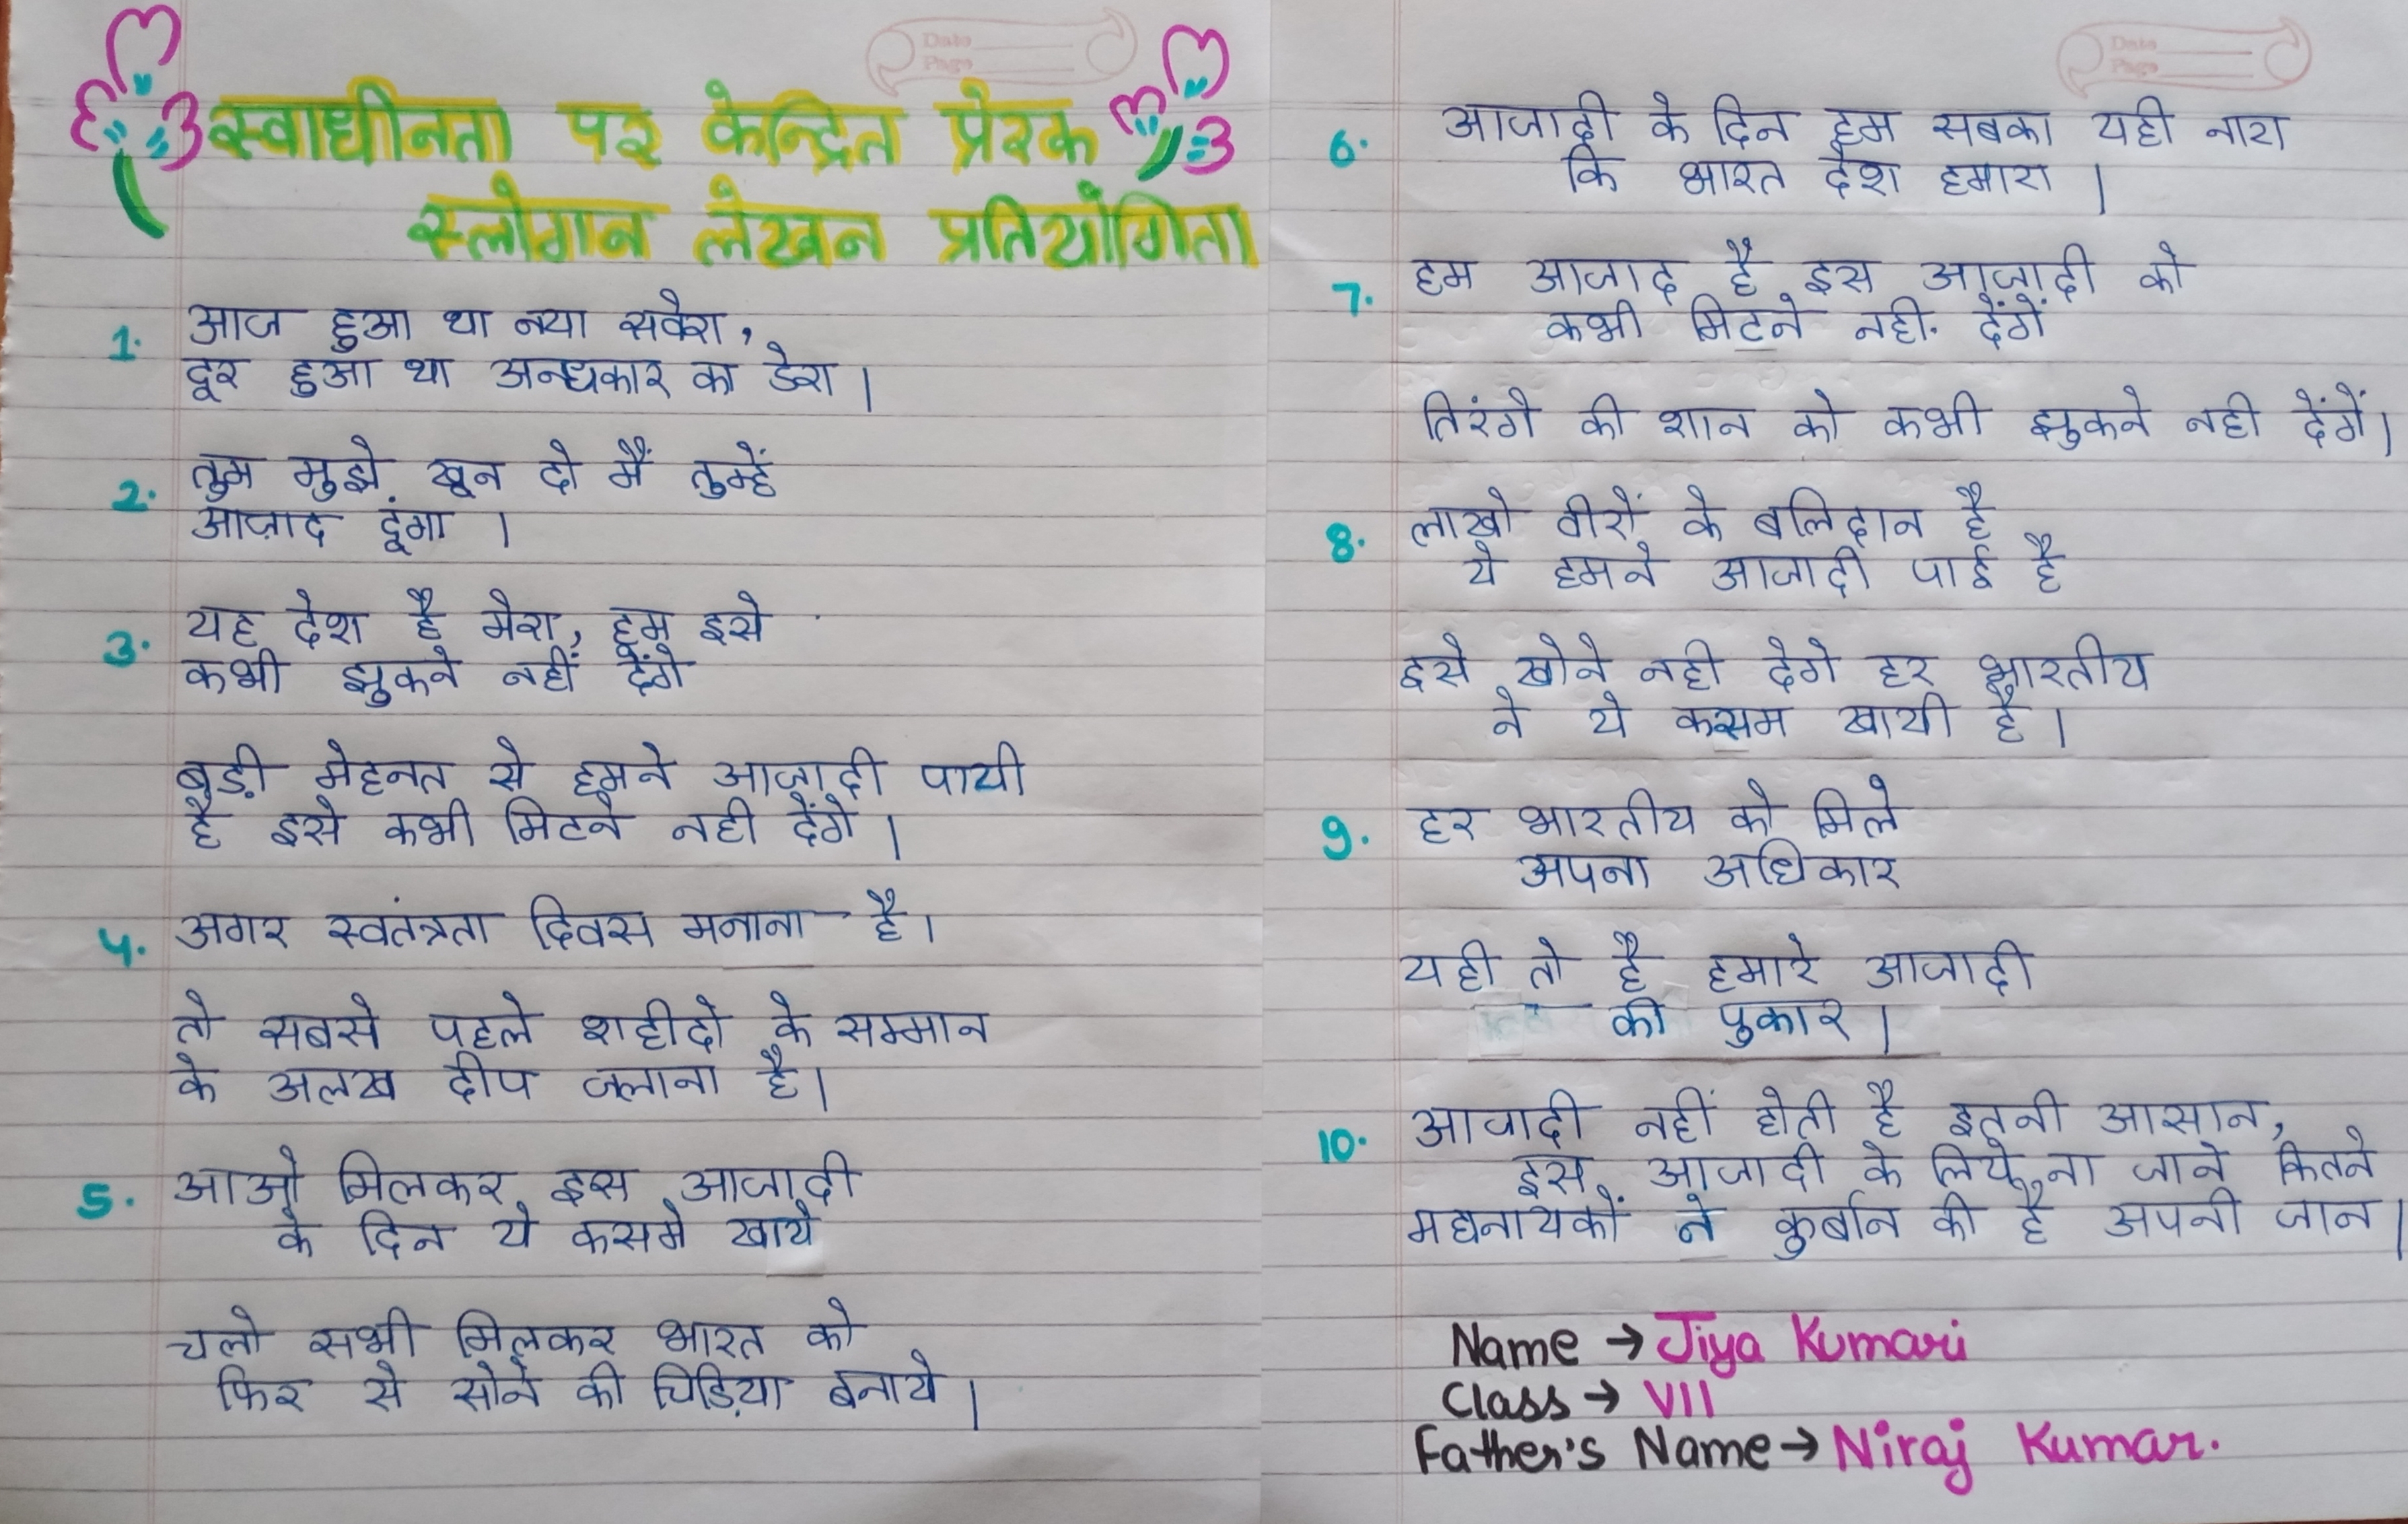 Date
Page
स्वाधीनता पर केन्द्रित प्रेरक
स्लोगान लेखन प्रतियोगिता
1. आज हुआ था नया सवेरा,
दूर हुआ था अन्धकार का डेरा।
2. तुम मुझे खून दो मैं तुम्हें
आज़ाद दूंगा ।
3. यह देश है मेरा, हम इसे
कभी झुकने नहीं देंगे
बड़ी मेहनत से हमने आजादी पायी
है इसे कभी मिटने नही देंगे।
4. अगर स्वतंत्रता दिवस मनाना है।
तो सबसे पहले शहीदो के सम्मान
के अलख दीप जलाना है।
5. आओ मिलकर इस आजादी
के दिन ये कसमे खाये
चलो सभी मिलकर भारत को
फिर से सोने की चिड़िया बनाये।
Date
Page
6. आजादी के दिन हम सबका यही नारा
कि भारत देश हमारा ।
7. हम आजाद है इस आजादी को
कभी मिटने नही देंगें
तिरंगे की शान को कभी झुकने नही देंगें।
8. लाखो वीरों के बलिदान है
ये हमने आजादी पाई है
इसे खोने नही देगे हर भारतीय
ने ये कसम खायी है।
9. हर भारतीय को मिले
अपना अधिकार
यही तो है हमारे आजादी
की पुकार।
10. आजादी नहीं होती है इतनी आसान,
इस आजादी के लिये ना जाने कितने
महानायकों ने कुर्बान की है अपनी जान।
Name → Jiya Kumari
Class → VII
Father's Name → Niraj Kumar.